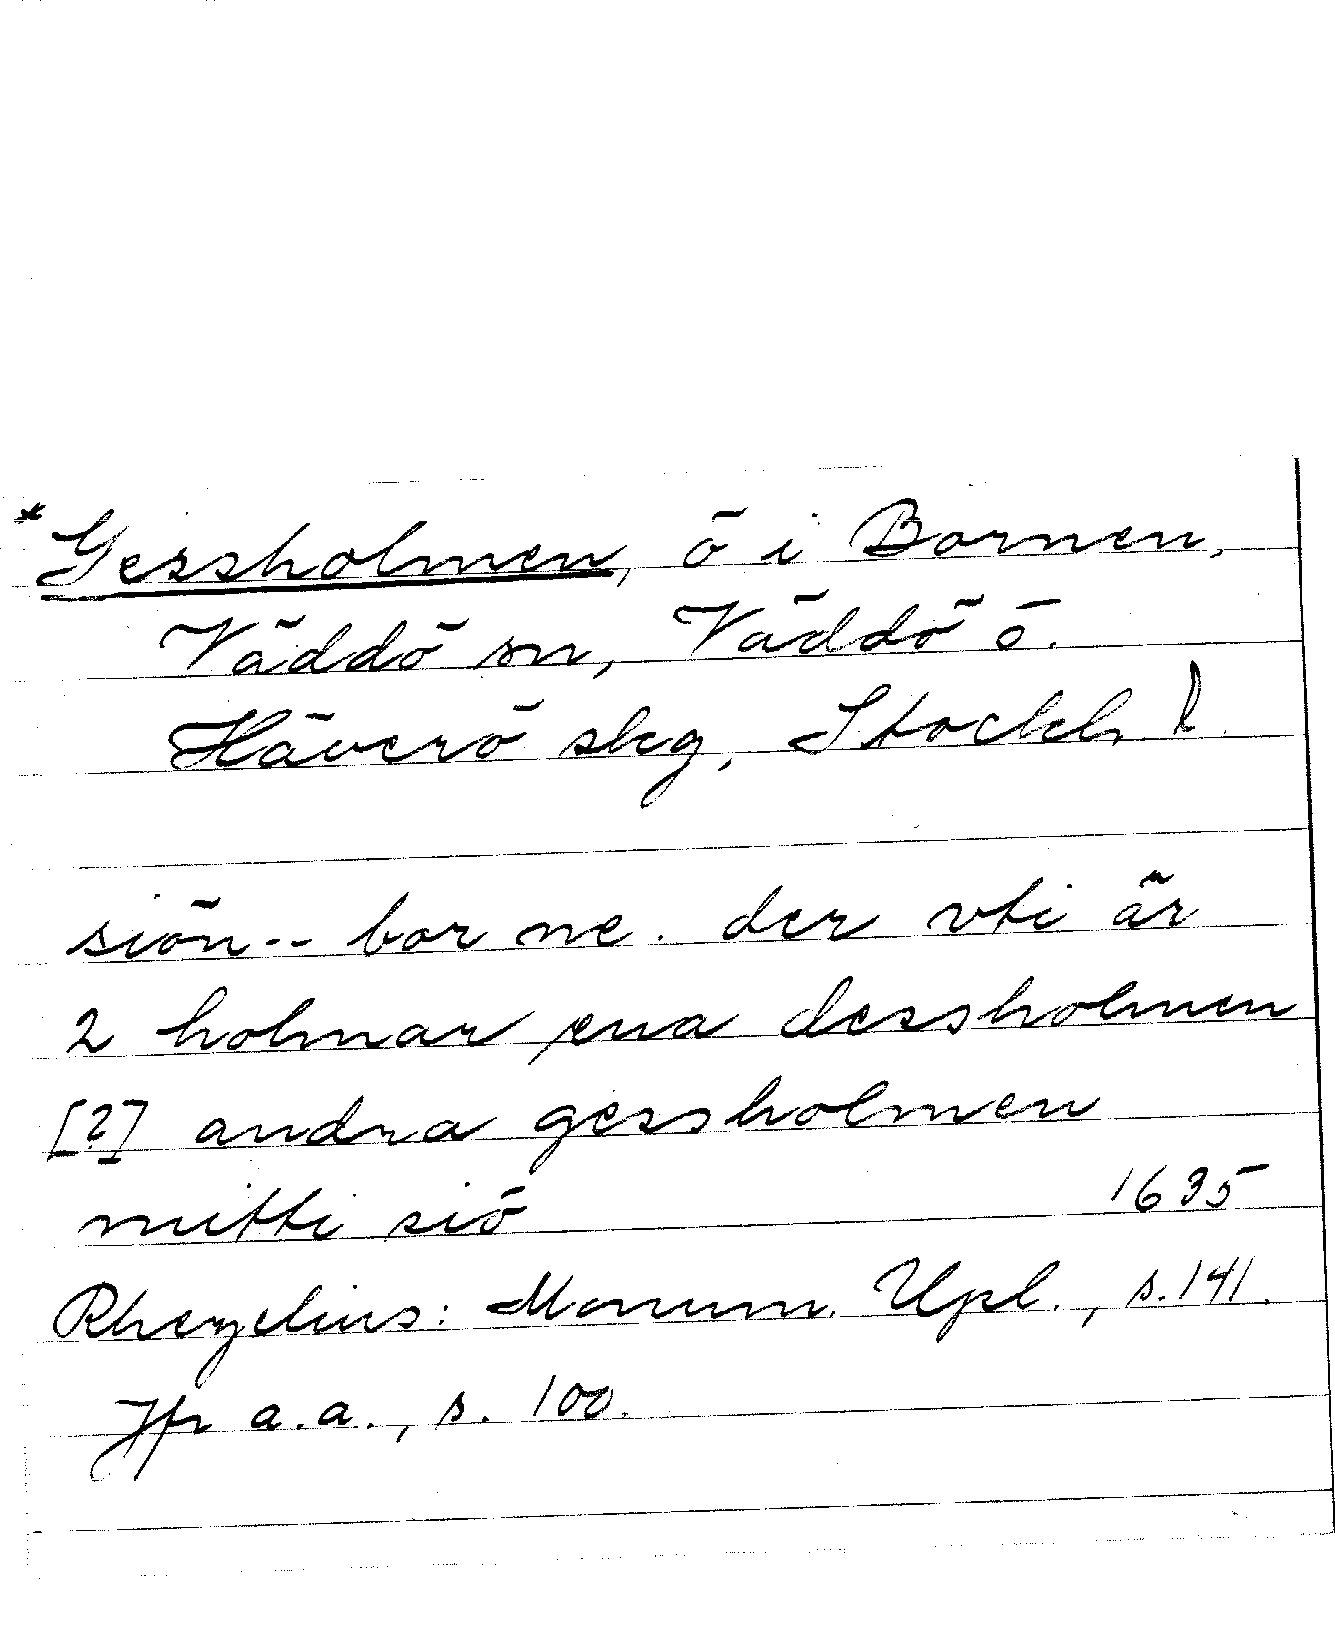 *Gessholmen, ö i Bornen,
Väddö sn, Väddö o.
Häverö skg, Stockh. l.
siön-- bor ne. der vti är
2 holmar ena dessholmen
[?] andra gessholmen
mitti siö 1635
Rhezelius: Monum. Upl., s. 141.
Jfr a.a., s. 100.